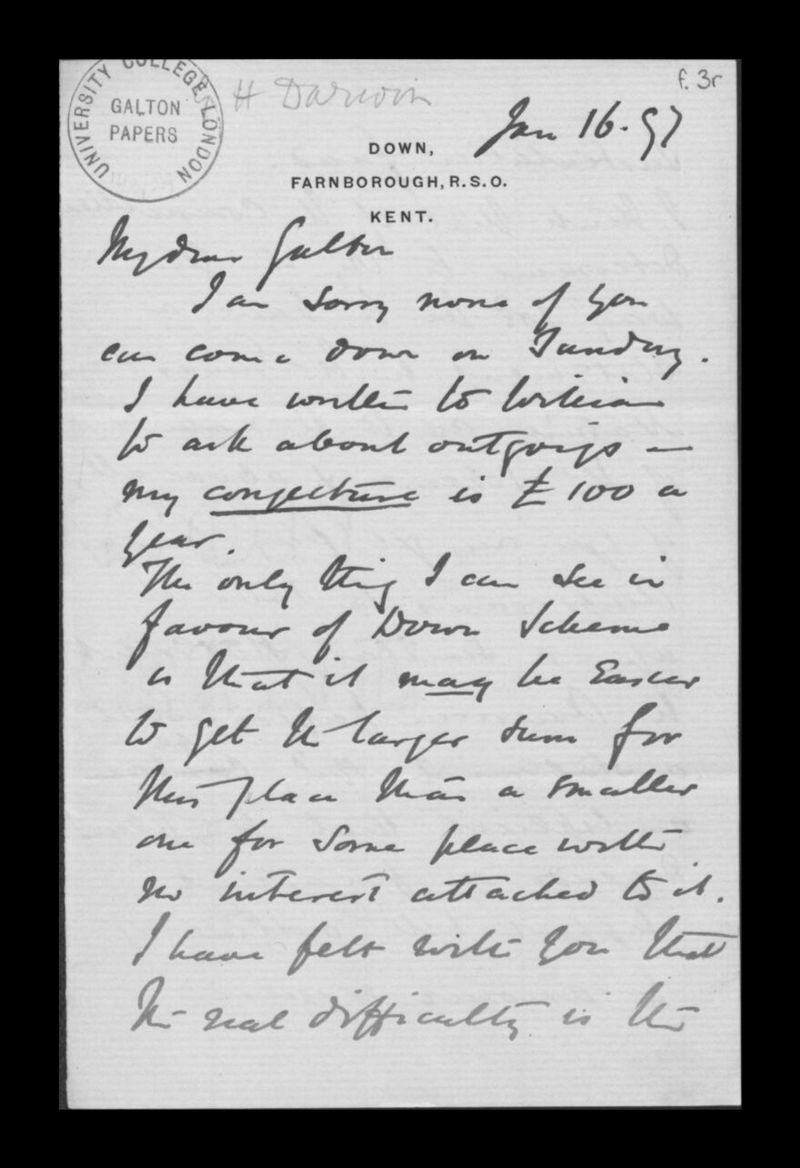 UNIVERSITY COLLEGE LONDON
GALTON
PAPERS
H Darwin
f. 3r
Jan 16. 97
DOWN,
FARNBOROUGH, R.S.O.
KENT.
My dear Galton
I am sorry none of you
can come down on Sunday.
I have written to William
to ask about outgoings —
my conjecture is £100 a
year.
The only thing I can see in
favour of Down Scheme
is that it may be easier
to get the larger sum for
this place than a smaller
one for some place with
no interest attached to it.
I have felt with you that
the real difficulty is the